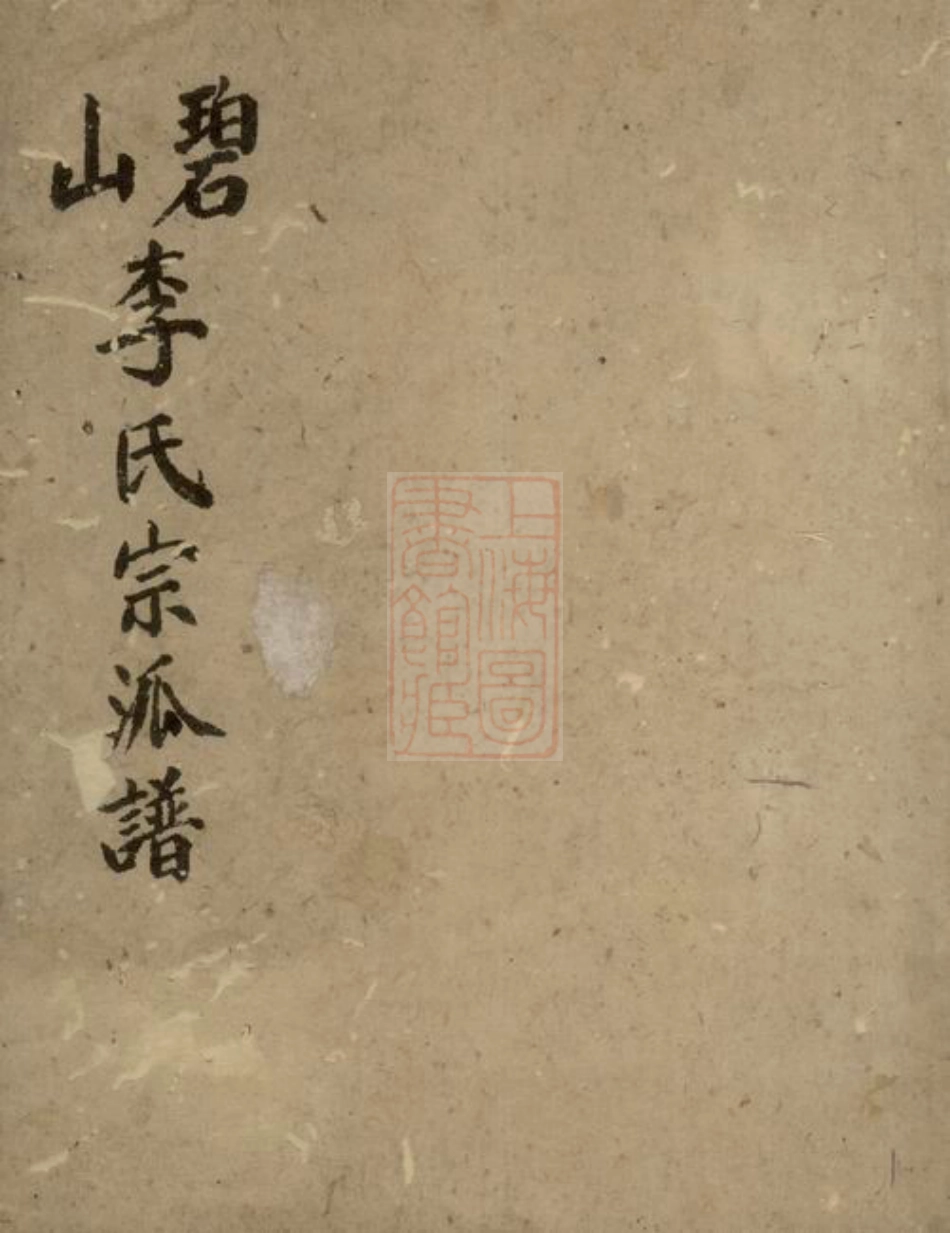 碧山李氏宗派譜
上海圖
書館藏